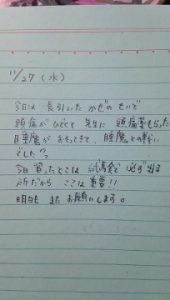 11/27 (水)
今日は 長引いた かぜの せいで
頭痛が ひどくて 先生に 頭痛薬もらったら
睡魔が おそってきて、睡魔との戦い
でした
今日 習ったとこは 試験で 必ず出る
所だから ここは 重要!!
明日も また お願いします。